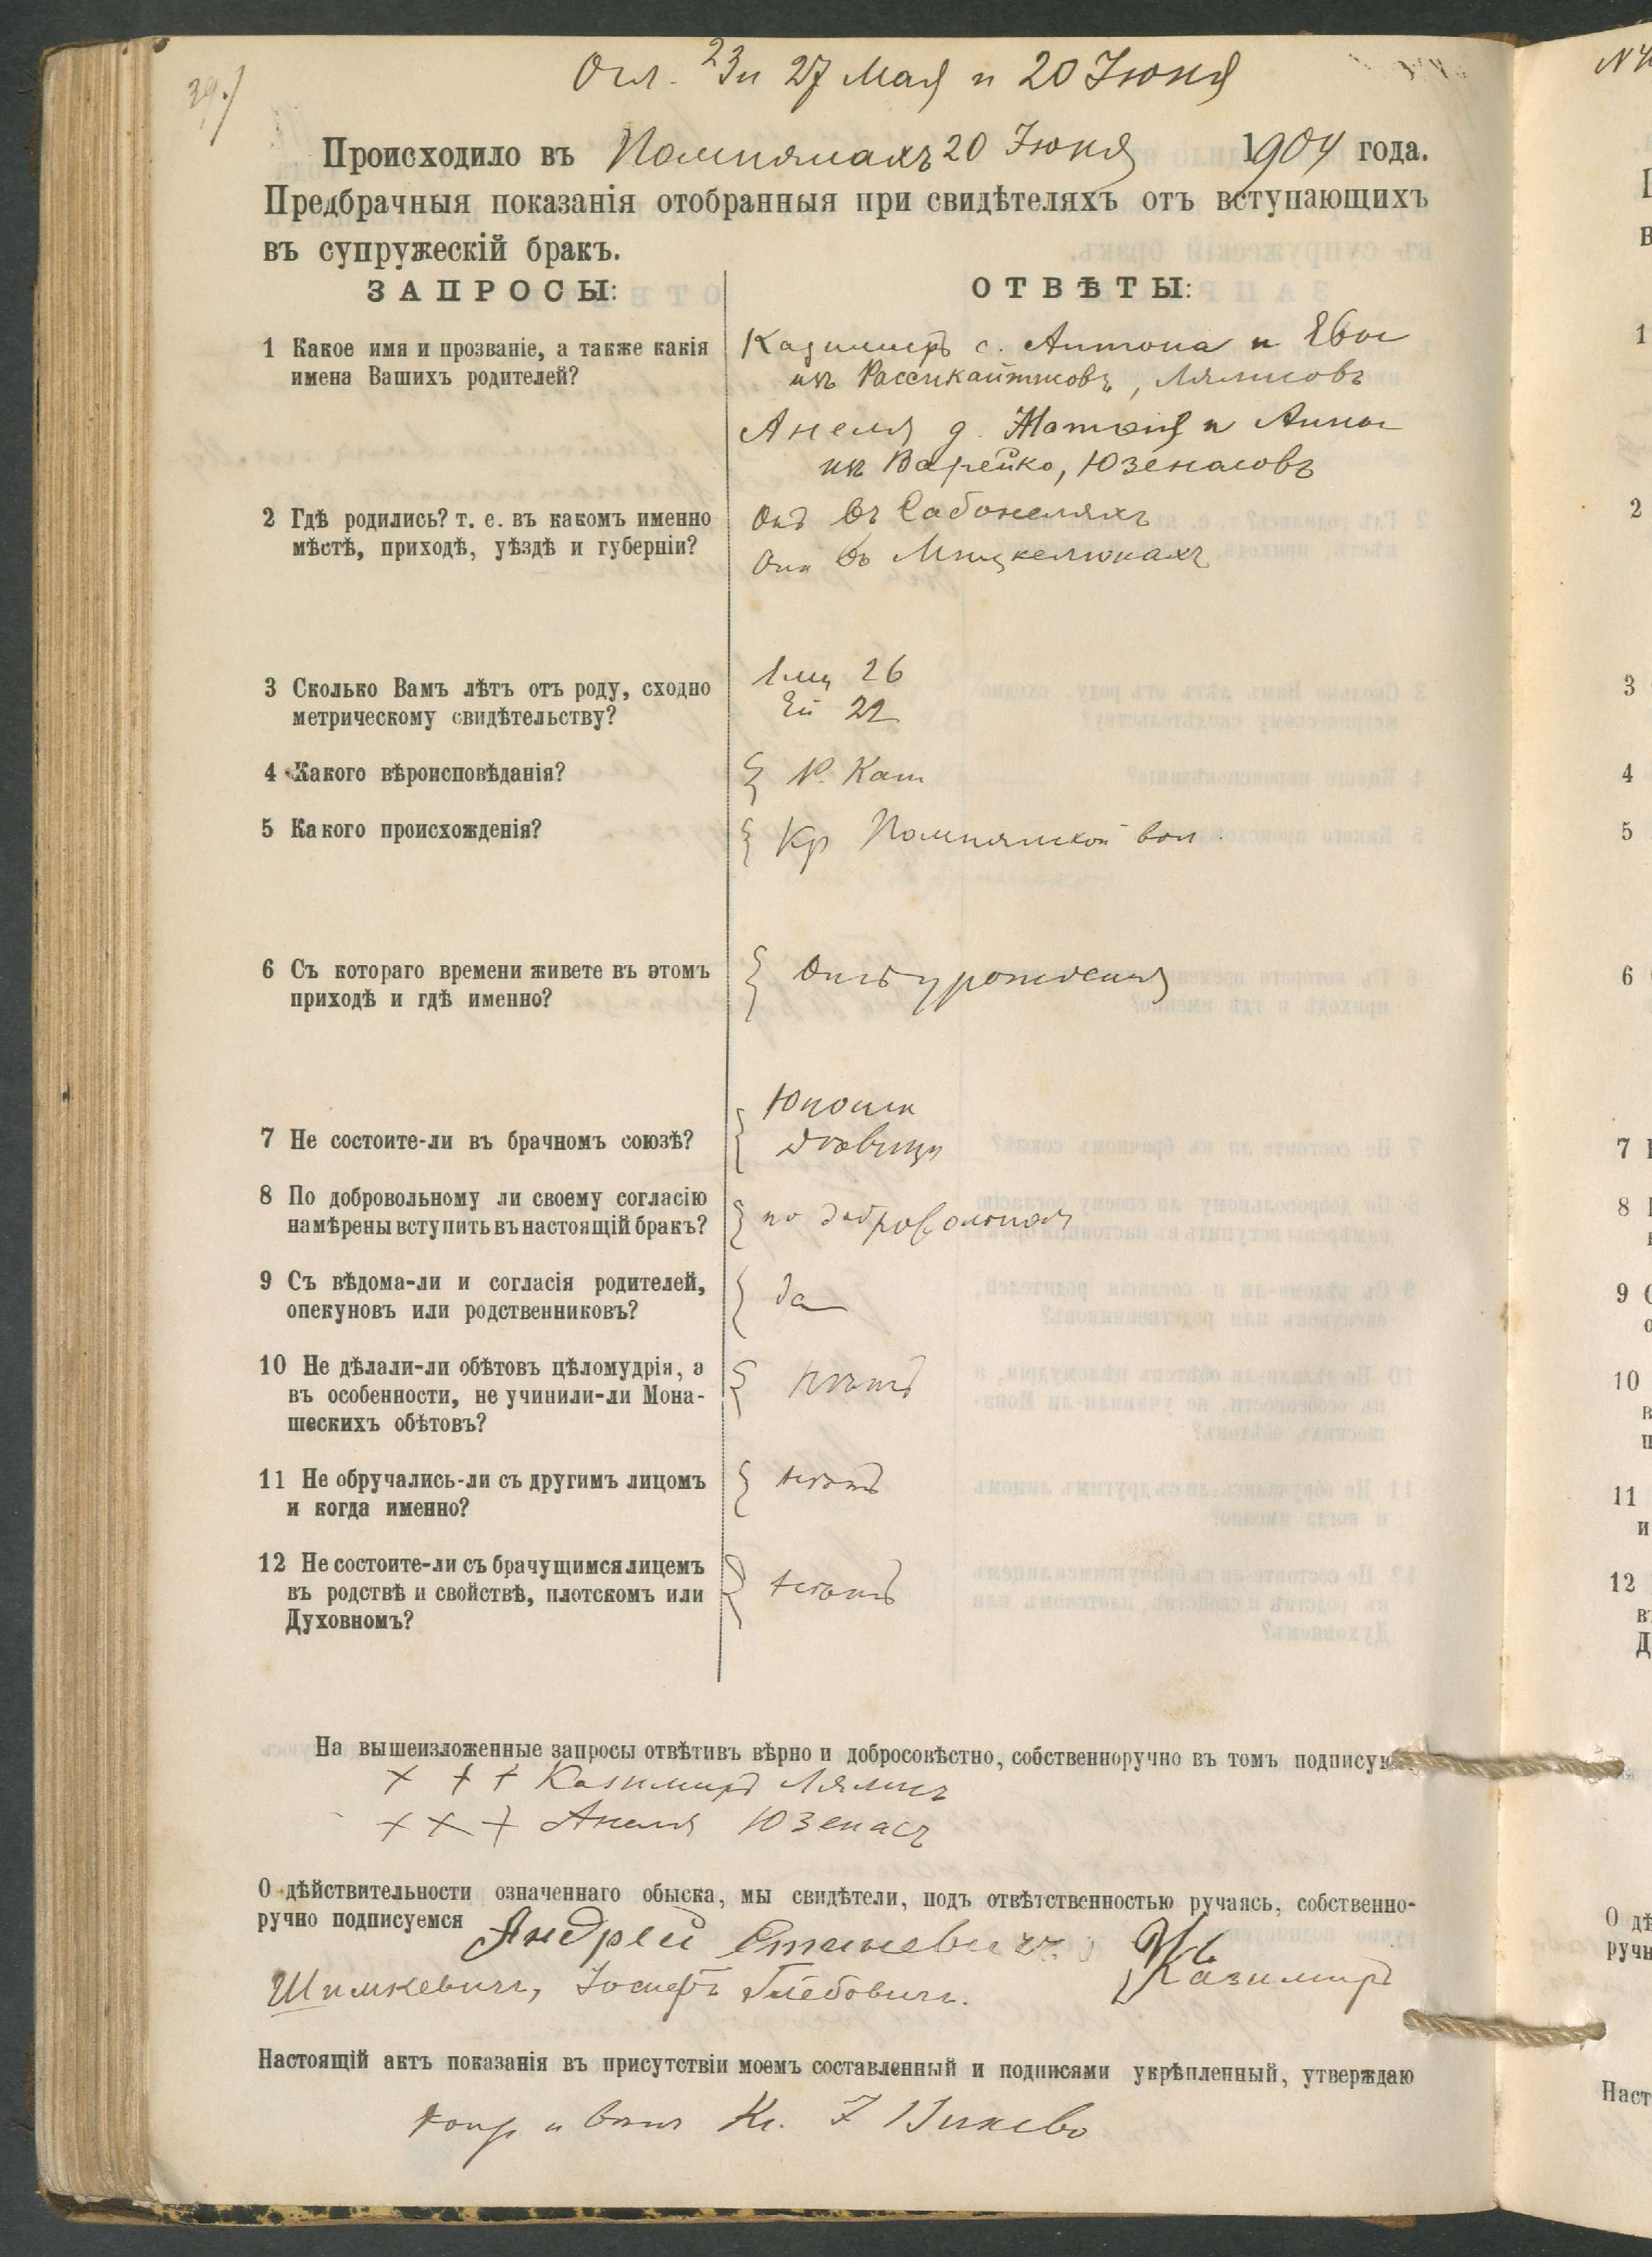 39.)
Огл. 23 и 27 Мая и 20 Іюня
Происходило въ Помпянахъ 20 Іюня 1904 года.
Предбрачныя показанія отобранныя при свидѣтеляхъ отъ вступающихъ
въ супружескій бракъ.
ЗАПРОСЫ:
ОТВѢТЫ:
1 Какое имя и прозваніе, а также какія
имена Вашихъ родителей?
Казимиръ с. Антона и Евы
изъ , Лялисовъ
Анеля д. Матвія и Анны
изъ Варейко, Юзенасовъ
2 Гдѣ родились? т. е. въ какомъ именно
мѣстѣ, приходѣ, уѣздѣ и губерніи?
Онъ въ Сабонеляхъ
Она въ Мицкелюнахъ
3 Сколько Вамъ лѣтъ отъ роду, сходно
метрическому свидѣтельству?
Ему 26
Ей 22
4 Какого вѣроисповѣданія?
Р. Кат
5 Какого происхожденія?
Кр Помпянской вол.
6 Съ котораго времени живете въ этомъ
приходѣ и гдѣ именно?
Отъ урожденія
7 Не состоите-ли въ брачномъ союзѣ?
Юноша
дѣвица
8 По добровольному ли своему согласію
намѣрены вступить въ настоящій бракъ?
по добровольном
9 Съ вѣдома-ли и согласія родителей,
опекуновъ или родственниковъ?
да
10 Не дѣлали-ли обѣтовъ цѣломудрія, а
въ особенности, не учинили-ли Мона-
шескихъ обѣтовъ?
нѣтъ
11 Не обручались-ли съ другимъ лицомъ
и когда именно?
нѣтъ
12 Не состоите-ли съ брачущимся лицемъ
въ родствѣ и свойствѣ, плотскомъ или
Духовномъ?
нѣтъ
На вышеизложенные запросы отвѣтивъ вѣрно и добросовѣстно, собственноручно въ томъ подписую
+ + + Казимиръ Лялисъ
+ + + Анеля Юзенасъ
О дѣйствительности означеннаго обыска, мы свидѣтели, подъ отвѣтственностью ручаясь, собственно-
ручно подписуемся Андрей Казимиръ
Шимкевичъ, Іосифъ Глебовичъ.
Настоящій актъ показанія въ присутствіи моемъ составленный и подписями укрѣпленный, утверждаю